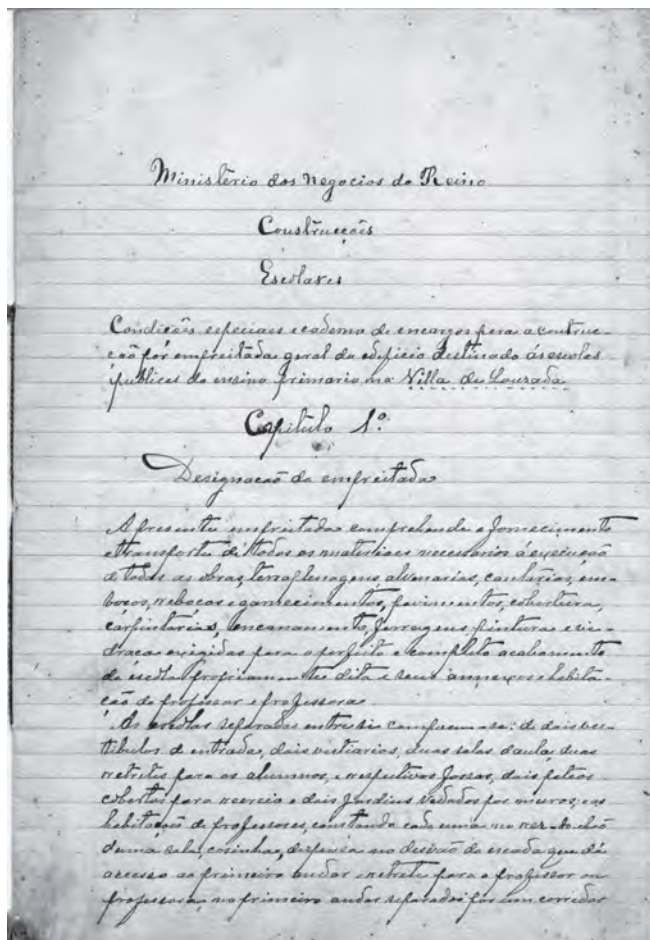 Ministério dos Negocios do Reino
Construcçoẽs
Escolares
Condicoẽs especiaes e caderno de encargos para a construc-
ção por empreitada geral do edificio destinado ás escolas
publicas do ensino primario na Villa de Louzada
Capitulo 1º
Designação da empreitada
A presente empreitada comprehende o fornecimento
e transporte de todos os materiaes necessarios á execução
de todas as obras, terraplenagens, alvenarias, cantarias, em-
bocos, rebocos e garnecimentos, pavimentos, cobertura,
carpintarias, encanamento, ferragens pintura e vi-
draça exigidas para o perfeito e completo acabamento
da escola propriamente dita e seus annexos e habita-
ção do professor e professora.
As escolas separadas entre si compoem-se: de dois ves-
tibulos de entrada, dois vestiarios, duas salas d'aula, duas
retretes para os alumnos, e respectivas fossas, dois pateos
cobertos para recreio e dois jardins vedados por muros; as
habitação de professores, constando cada uma no rez-do-chão
duma sala, cosinha, despensa no desvão da escada que dá
accesso ao primeiro andar e retrete para o professor ou
professora, no primeiro andar separados por um corredor